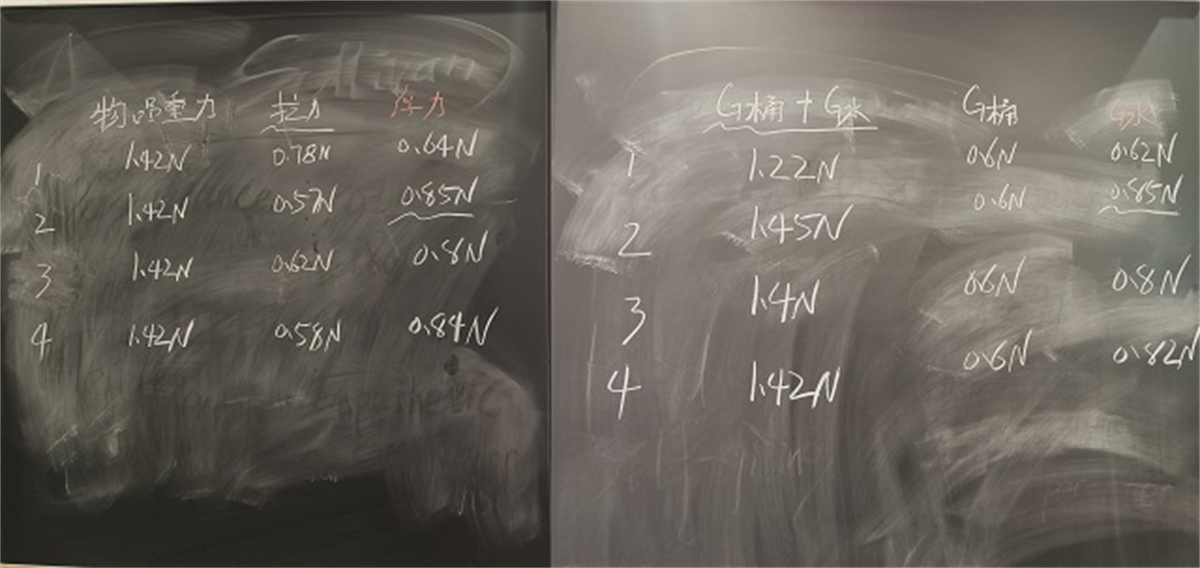 物品重力 拉力 浮力
1 1.42N 0.78N 0.64N
2 1.42N 0.57N 0.85N
3 1.42N 0.62N 0.8N
4 1.42N 0.58N 0.84N
G桶+G水 G桶 G水
1 1.22N 0.6N 0.62N
2 1.45N 0.6N 0.85N
3 1.4N 0.6N 0.8N
4 1.42N 0.6N 0.82N